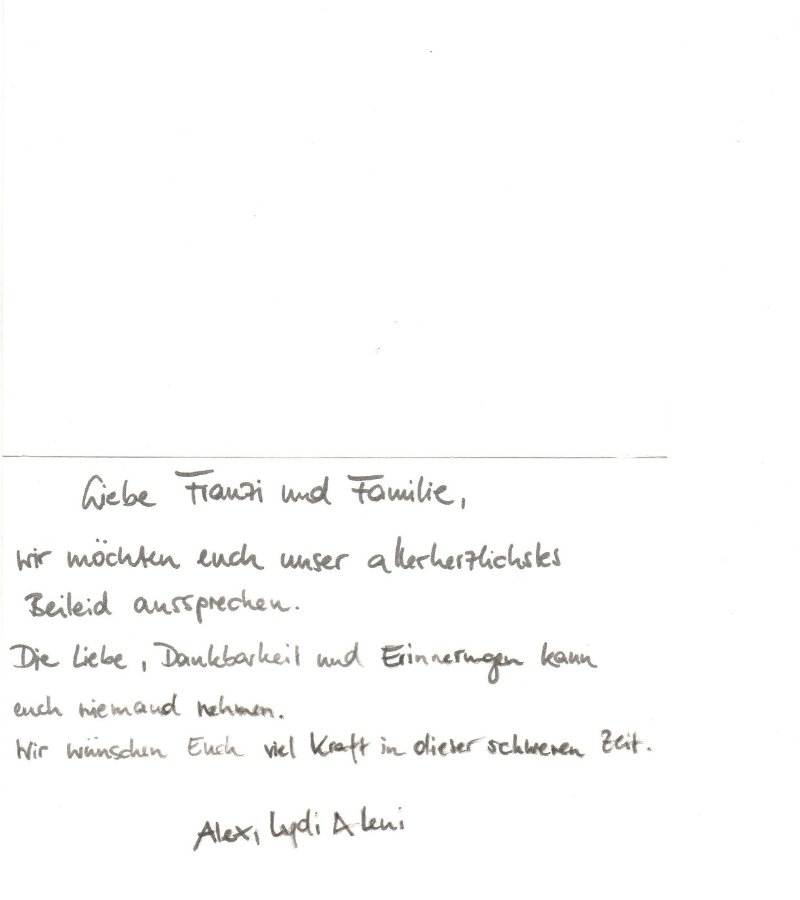 Liebe Franzi und Familie,
wir möchten euch unser allerherzlichstes
Beileid aussprechen.
Die Liebe, Dankbarkeit und Erinnerungen kann
euch niemand nehmen.
Wir wünschen Euch viel Kraft in dieser schweren Zeit.
Alex, Lydi & Leni